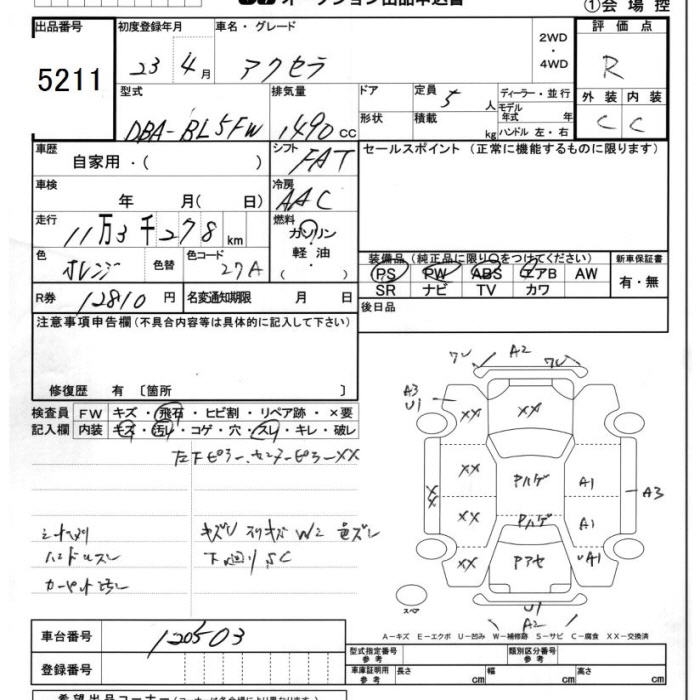 オークション出品申込書 ①会場控
出品番号 初度登録年月 車名・グレード 2WD ・ 4WD 評価点
5211 23 4月 アクセラ R
型式 排気量 ドア 定員 5人 ディーラー・並行 外装 内装
DBA-BL5FW 1490cc 形状 積載 kg モデル年式 年 ハンドル 左・右 C C
車歴 シフト セールスポイント (正常に機能するものに限ります)
自家用・( ) FAT
車検 冷房
年 月( 日) AAC
走行 燃料
11万3千278km ガソリン
色 色替 色コード 軽油 装備品 (純正品に限り○をつけてください) 新車保証書
オレンジ 27A ( ・ ) PS PW ABS エアB AW 有・無
R券 12810円 名変通知期限 月 日 SR ナビ TV カワ
後日品
注意事項申告欄 (不具合内容等は具体的に記入して下さい)
修復歴 有 〔箇所 〕
検査員 FW キズ・飛石・ヒビ割・リペア跡・×要
記入欄 内装 キズ・汚れ・コゲ・穴・スレ・キレ・破レ
左下ピラー、センターピラーXX
キズU スリキズ W2 色ズレ
ハンドルスレ 下廻りSC
カーペット汚レ
ワレ A2 ワレ
A3
U1 XX XX
XX Pハゲ A1
XX A3
XX Pハゲ A1
XX Pアセ A1
スペア U1
A2
A-キズ E-エクボ U-凹み W-補修跡 S-サビ C-腐食 XX-交換済
車台番号 120503 型式指定番号 参考 類別区分番号 参考
登録番号 車庫証明用 参考 長さ cm 幅 cm 高さ cm
希望出品コーナー